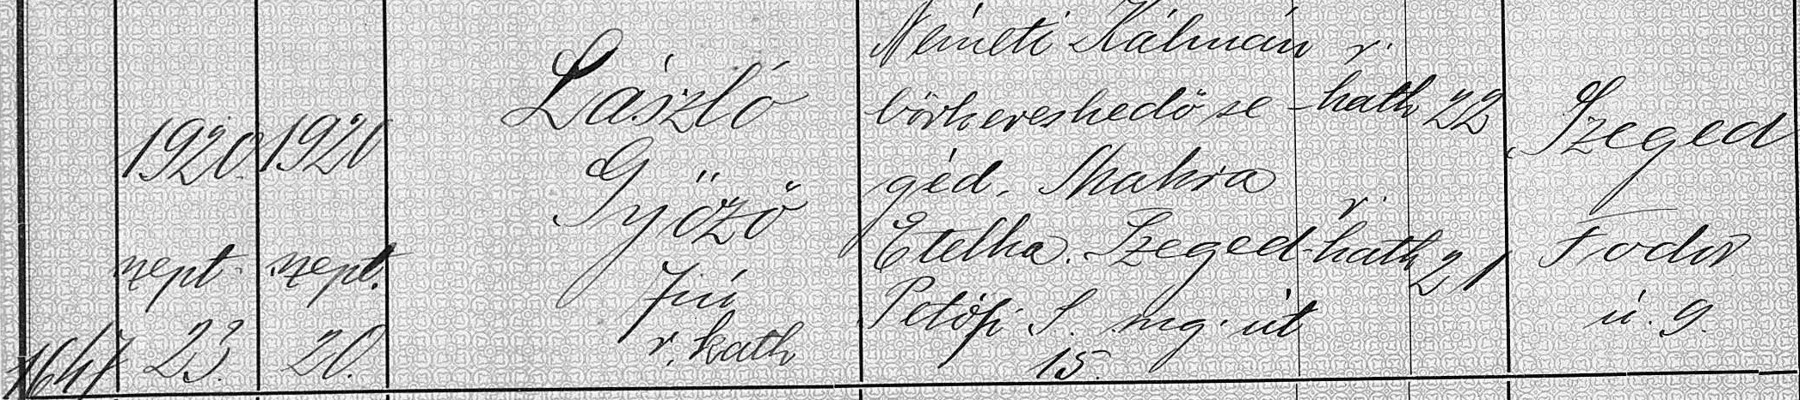 1647
1920.
szept.
23.
1920
szept.
20.
László
Győző
fiú
r. kath
Németi Kálmán r.
bőrkereskedő se- kath 22
géd. Makra
Etelka. Szeged r. kath 21
Petőfi S. sug. út
15.
Szeged
Fodor
u. 9.